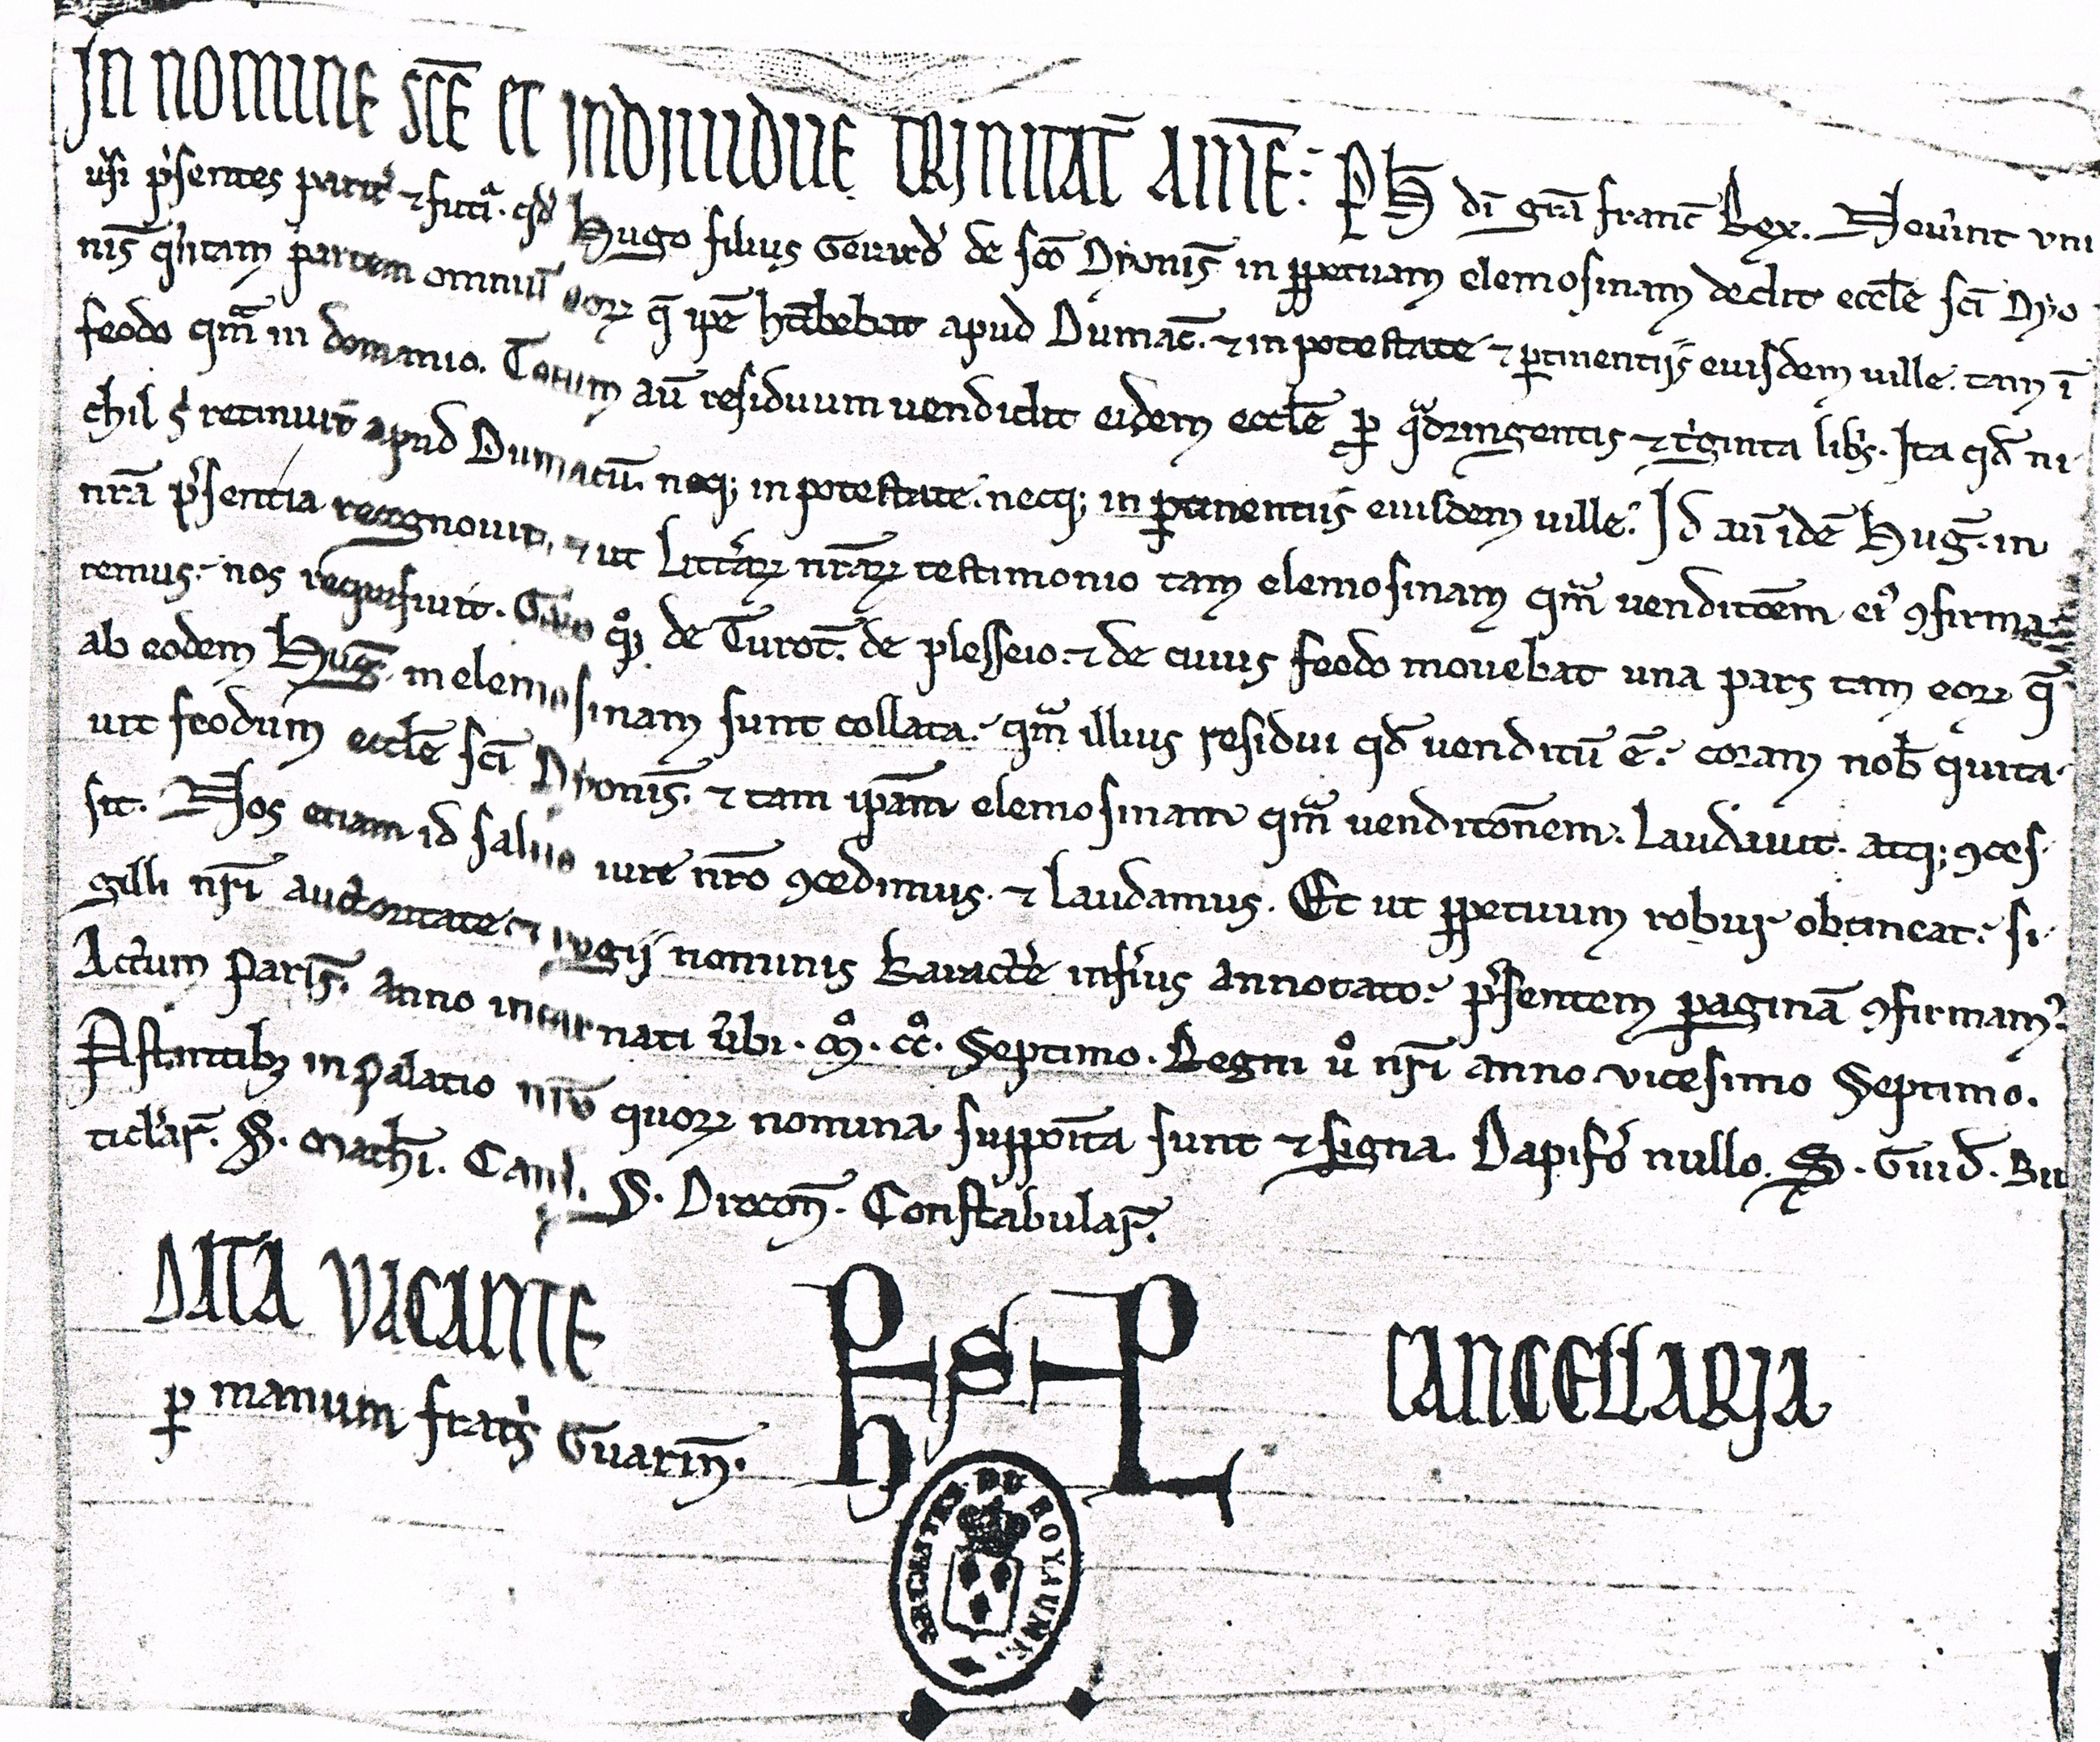 In nomine sce et indiuidue trinitat̄ Ame͞: Ph̄ di͞ gra͞ franc̄ Rex. Nouint vni
ūsi psentes parit̾ ⁊ futi. qd̾ Hugo filius Gerard̾ de sco͞ Dyonis̄ in ppetuam elemosinam dedit eccle͞ sci͞ Dyo
nis̄ qͥntam partem omniu͞ eoꝝ q̄ ip̄e habebat apud Dumac̄. ⁊ in potestate ⁊ ꝑtinentijs eiusdem uille. tam i͞
feodo qm̄ in domanio. Totum au͞ residuum uendidit eidem eccle͞ ꝑ qͣdringentis ⁊ tͥginta libͥs. Ita qd̄ ni
chil sͥ retinuit apud Dumacu͞. neqꝫ in potestate. necqꝫ in ꝑtinentiis eiusdem uille. Id au͞ ide͞ Huḡ. in
nra͞ psentia recognouit, ⁊ ut Litt̾aꝝ nr̄aꝝ testimonio tam elemosinam qm̄ uendito͞em ei᾽ ꝯfirma
remus. nos requisiuit. Guido qͦꝫ de Turot̄. de plesseio. ⁊ de cuius feodo mouebat una pars tam eoꝝ q̄
ab eodem Huḡ. in elemosinam sunt collata. qm̄ illius residui qd̄ uenditu͞ e͞. coram nob̄ quita
uit feodum eccle͞ sci͞ Dyonis̄. ⁊ tam ip̄am elemosinam qm̄ uendito͞nem. Laudauit. atqꝫ ꝯces
sit. Nos etiam id saluo iure nr̄o ꝯcedimus. ⁊ laudamus. Et ut ppetuum robur obtineat. si
gilli nr̄i auctoritate ⁊ regij nominis karact̾e inf̾ius annotato. psentem paginā ꝯfirmam᾽.
Actum Paris̄. anno incarnati ūbi. Mͦ. CCͦ. Septimo. Regni uͦ nr̄i anno vicesimo Septimo.
Astantibꝫ in palatio nr̄o quoꝝ nomina supposita sunt ⁊ signa. Dapifo̾ nullo. S. Guid̄. Bu
ticlar̄. S. Mathi͞. Cam̄. S. Drocon̄. Constabular̄.
DATA VACANTE CANCELLARIA
ꝑ manum fratͥs Guarin̄.
ARCHIVES DU ROYAUME